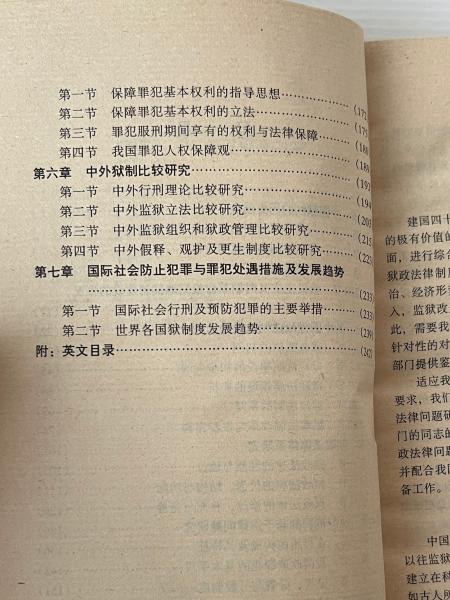 第一节 保障罪犯基本权利的指导思想……………(172
第二节 保障罪犯基本权利的立法………………(175
第三节 罪犯服刑期间享有的权利与法律保障………(180
第四节 我国罪犯人权保障观……………………(189
第六章 中外狱制比较研究………………………(193
第一节 中外行刑理论比较研究…………………(194
第二节 中外监狱立法比较研究…………………(203
第三节 中外监狱组织和狱政管理比较研究………(215
第四节 中外假释、观护及更生制度比较研究………(222
第七章 国际社会防止犯罪与罪犯处遇措施及发展趋势
……………………………………(233)
第一节 国际社会行刑及预防犯罪的主要举措………(233
第二节 世界各国狱制度发展趋势………………(239
附：英文目录……………………………………(242
建国四十
的极有价值的
面，进行综合
狱政法律制度
治、经济形
入，监狱改
此，需要我
针对性的对
部门提供鉴
适应我
要求，我们
法律问题研
门的同志的
政法律问题
并配合我国
备工作。
中国
以往监狱
建立在科
如古人所